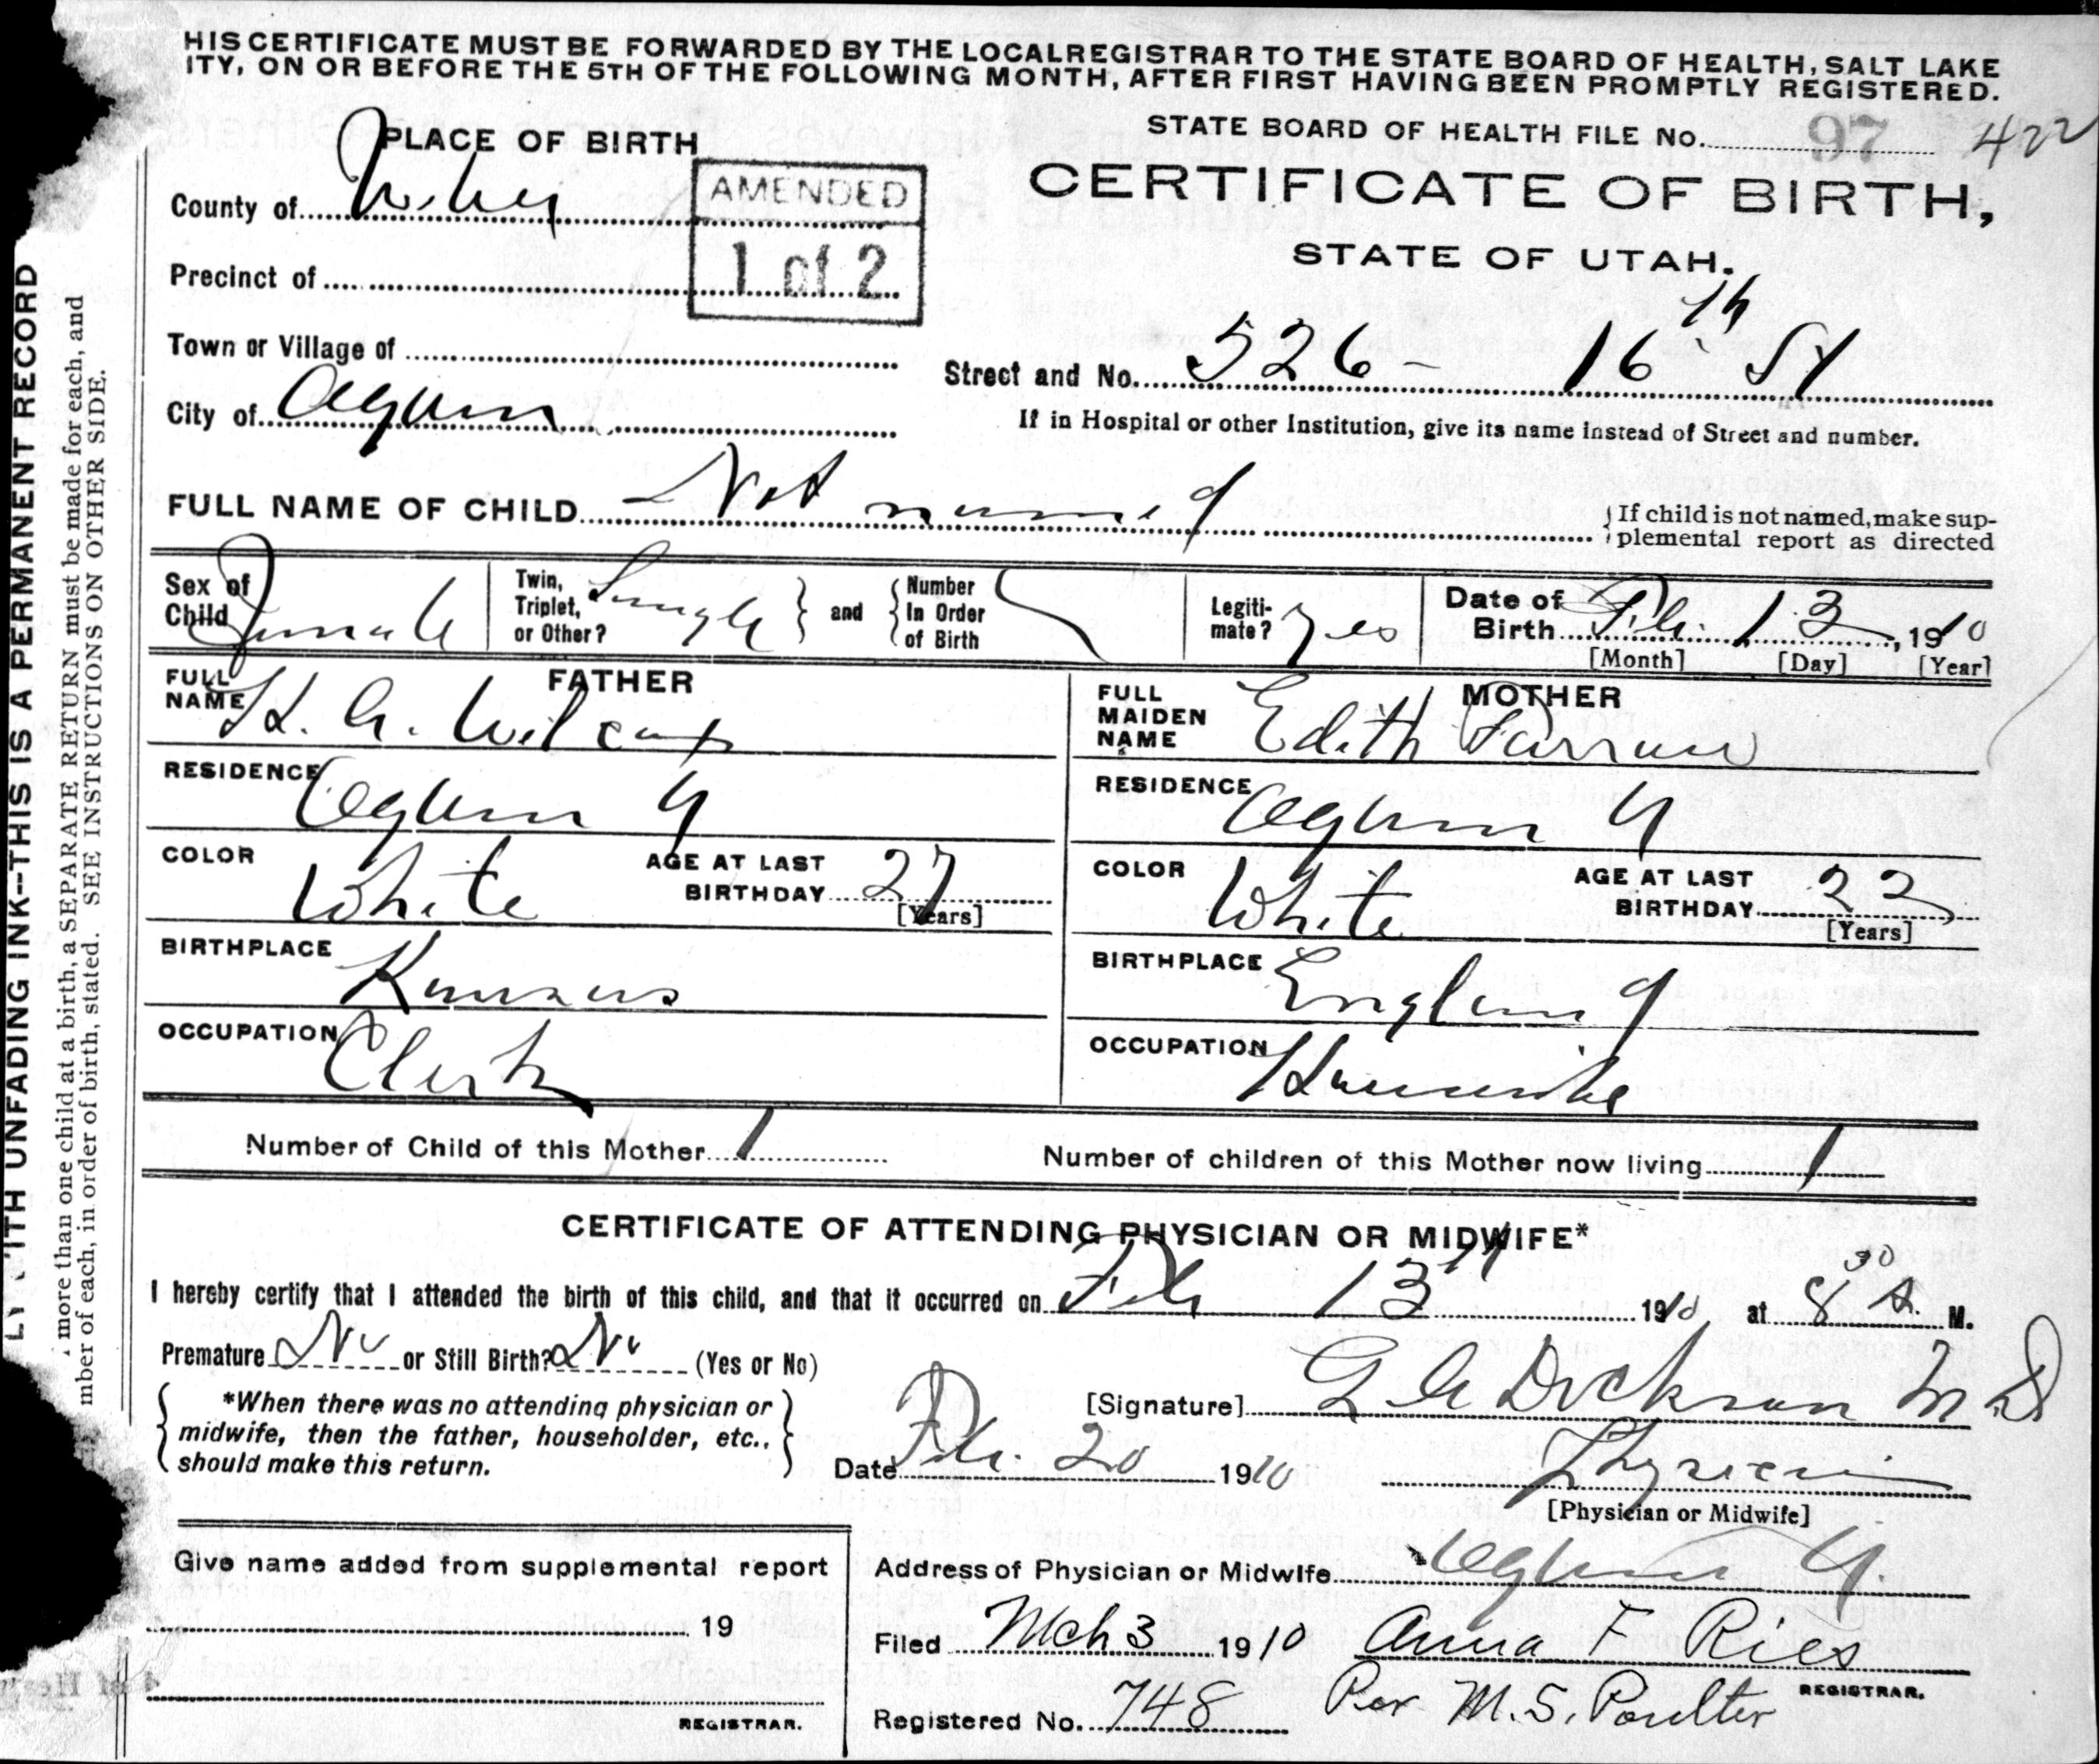 HIS CERTIFICATE MUST BE FORWARDED BY THE LOCAL REGISTRAR TO THE STATE BOARD OF HEALTH, SALT LAKE
ITY, ON OR BEFORE THE 5TH OF THE FOLLOWING MONTH, AFTER FIRST HAVING BEEN PROMPTLY REGISTERED.
PLACE OF BIRTH
STATE BOARD OF HEALTH FILE No. 97 422
County of Weber
AMENDED
1 of 2
CERTIFICATE OF BIRTH,
STATE OF UTAH.
Precinct of
Town or Village of
Street and No. 526 - 16th St
City of Ogden
If in Hospital or other Institution, give its name instead of Street and number.
FULL NAME OF CHILD Not named
If child is not named, make sup-
plemental report as directed
Sex of Child Female
Twin, Triplet, or Other? Single and Number In Order of Birth
Legiti-mate? Yes
Date of Birth Feb. 13, 1910
[Month] [Day] [Year]
FATHER
FULL NAME H. A. Wilcox
RESIDENCE Ogden U
COLOR White AGE AT LAST BIRTHDAY 27
[Years]
BIRTHPLACE Kansas
OCCUPATION Clerk
MOTHER
FULL MAIDEN NAME Edith Farrow
RESIDENCE Ogden U
COLOR White AGE AT LAST BIRTHDAY 22
[Years]
BIRTHPLACE England
OCCUPATION Housewife
Number of Child of this Mother 1 Number of children of this Mother now living 1
CERTIFICATE OF ATTENDING PHYSICIAN OR MIDWIFE*
I hereby certify that I attended the birth of this child, and that it occurred on Feb 13th 1910, at 8 30 A. M.
Premature No or Still Birth? No (Yes or No)
*When there was no attending physician or
midwife, then the father, householder, etc.,
should make this return.
[Signature] Dickson M D
Date Feb. 20 1910 Physician
[Physician or Midwife]
Give name added from supplemental report
19
REGISTRAR.
Address of Physician or Midwife Ogden U.
Filed Mch 3 1910 Anna F Ries
REGISTRAR.
Registered No. 748 Per M. S. Poulter
ITH UNFADING INK--THIS IS A PERMANENT RECORD
more than one child at a birth, a SEPARATE RETURN must be made for each, and
mber of each, in order of birth, stated. SEE INSTRUCTIONS ON OTHER SIDE.